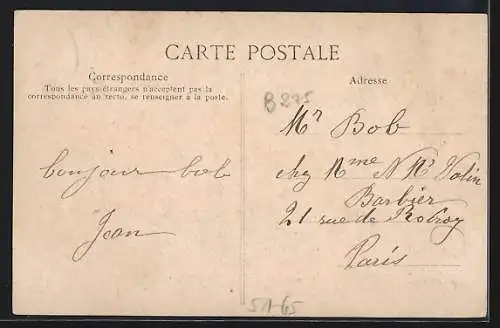 CARTE POSTALE
Correspondance
Tous les pays étrangers n'acceptent pas la
correspondance au recto, se renseigner à la poste.
bonjour bob
Jean
Adresse
B 275
Mr Bob
chez Mme
Barbier
21 rue de
Paris
51-65